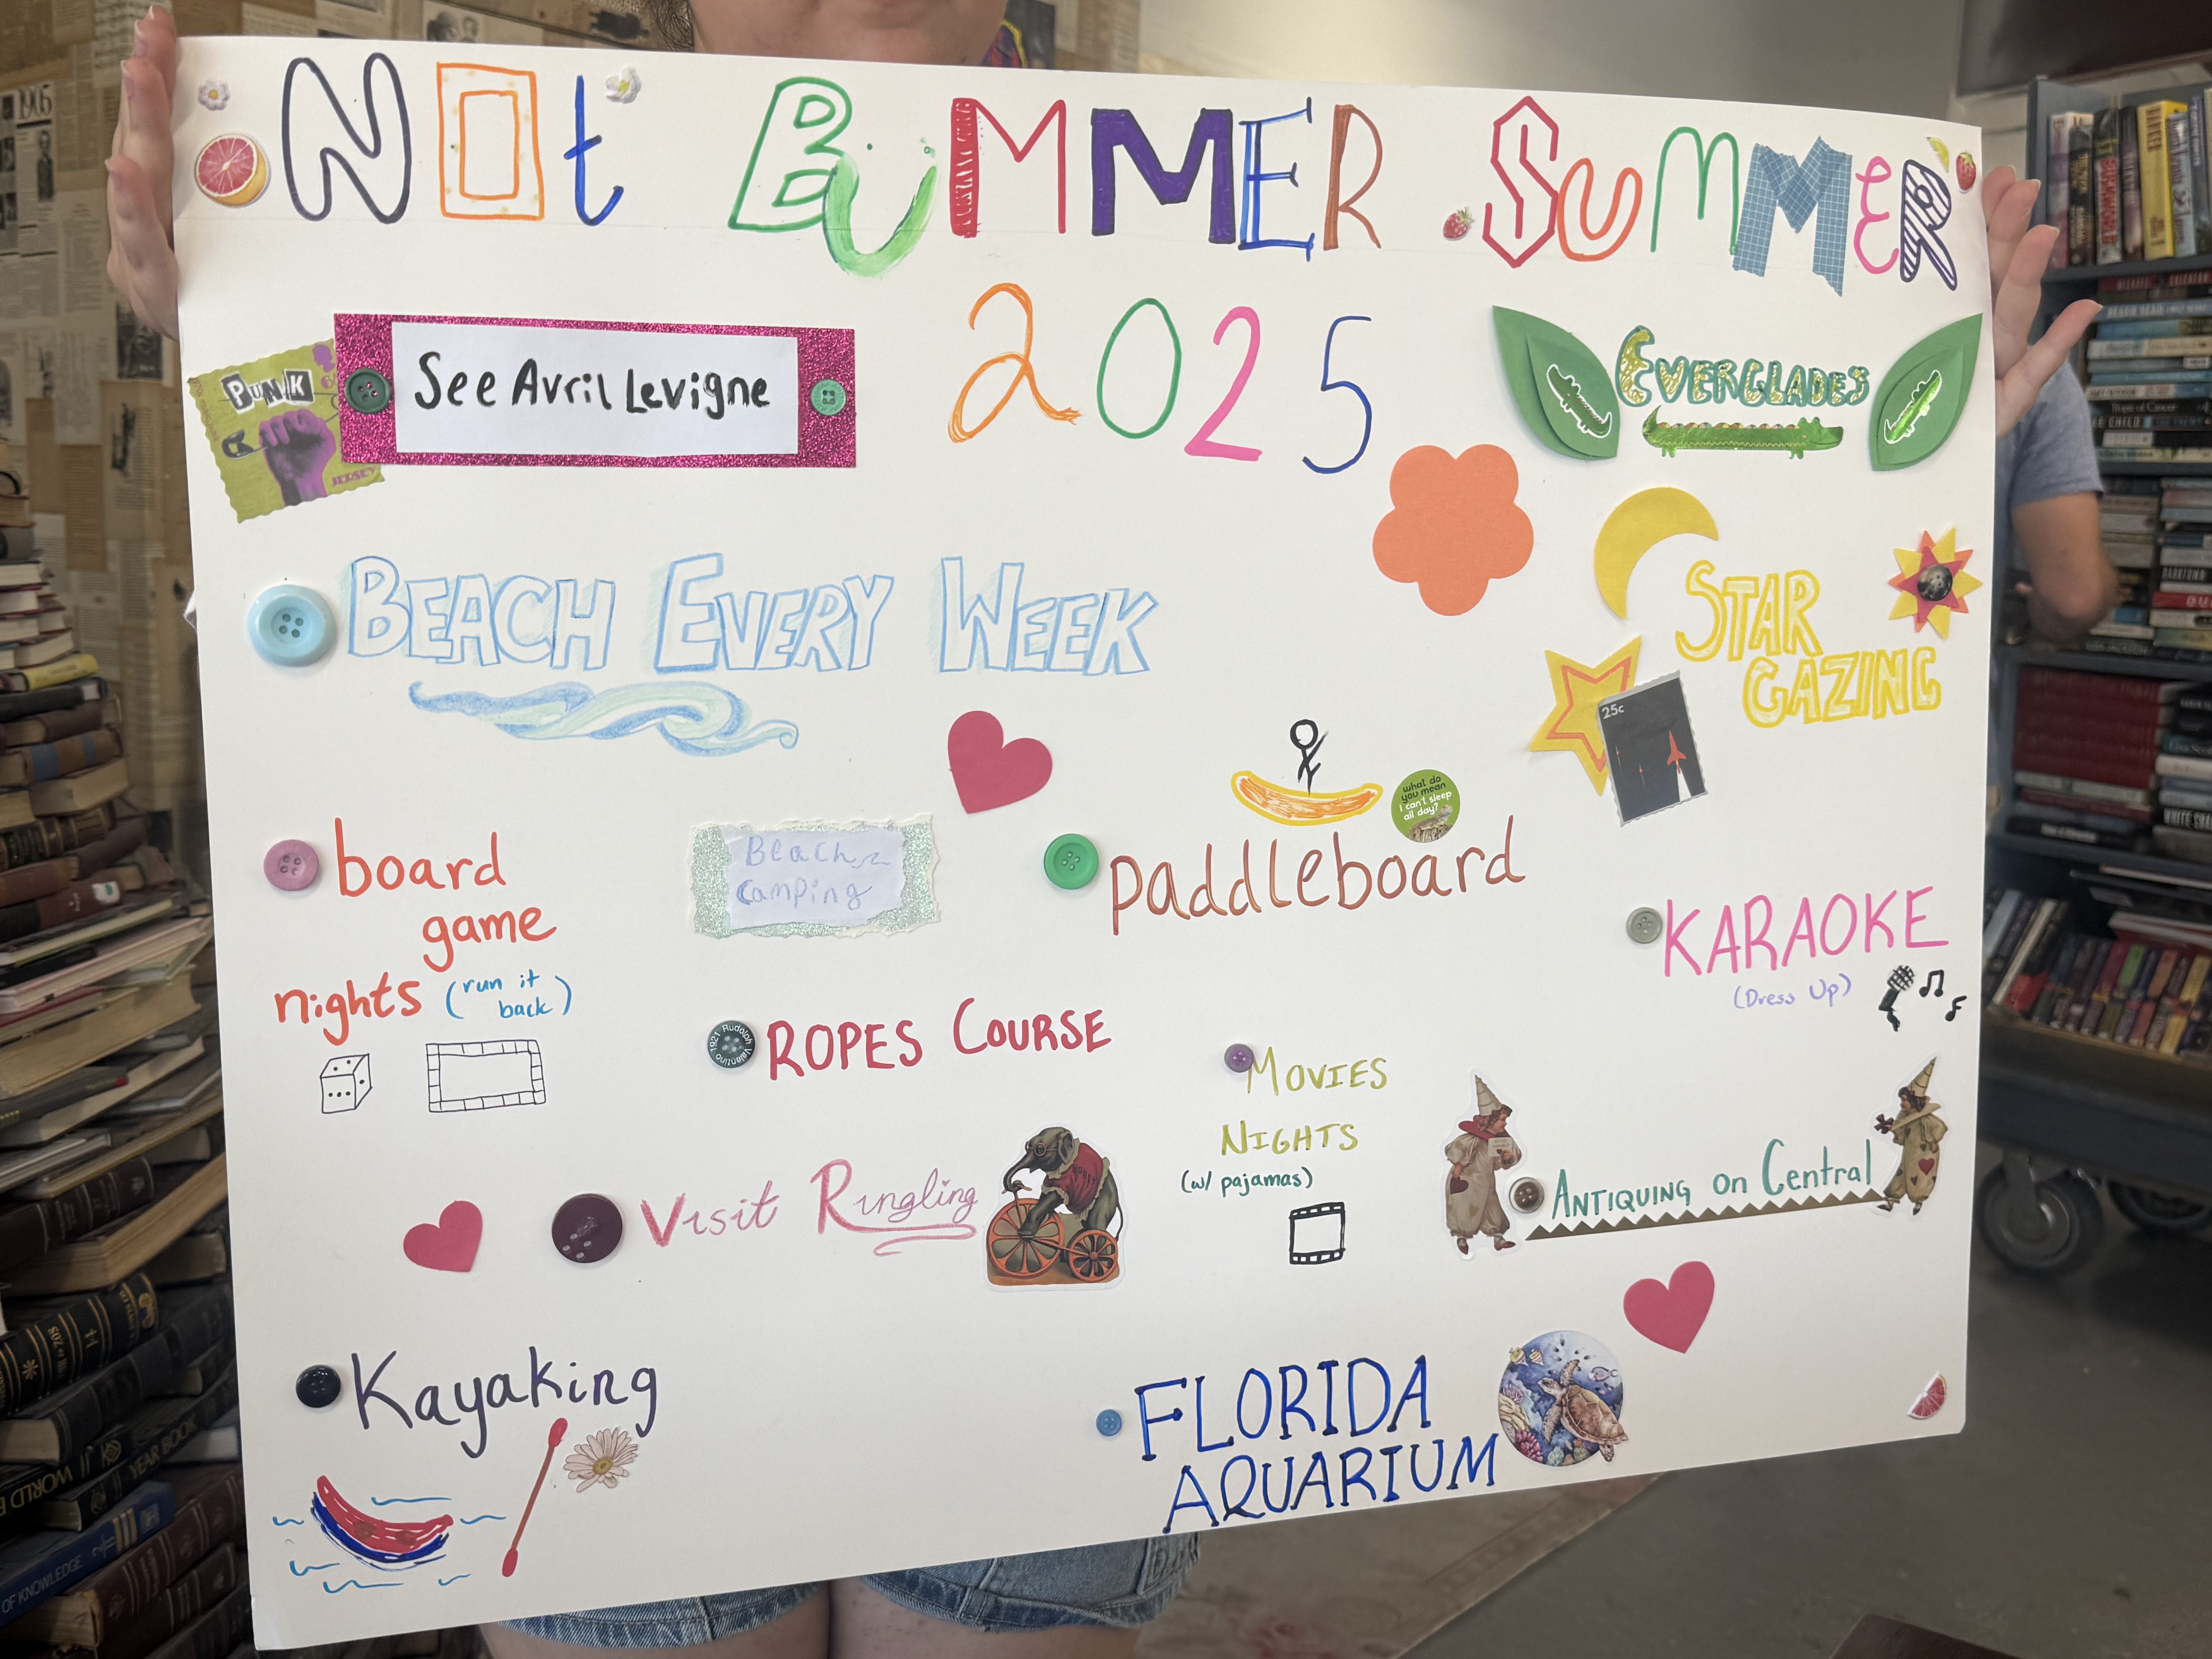 NOt BUMMER SUMMER
2025
PUNK
JERSEY
See Avril Levigne
EVERGLADES
BEACH EVERY WEEK
STAR
GAZING
25c
board
game
nights (run it
back)
Beach
Camping
what do
you mean
I can't sleep
all day?
paddleboard
KARAOKE
(Dress Up)
1921 Rudolph Valentino
ROPES COURSE
MOVIES
NIGHTS
(w/ pajamas)
Visit Ringling
ANTIQUING on Central
Kayaking
FLORIDA
AQUARIUM
1905
YEAR BOOK
WORLD
OF KNOWLEDGE